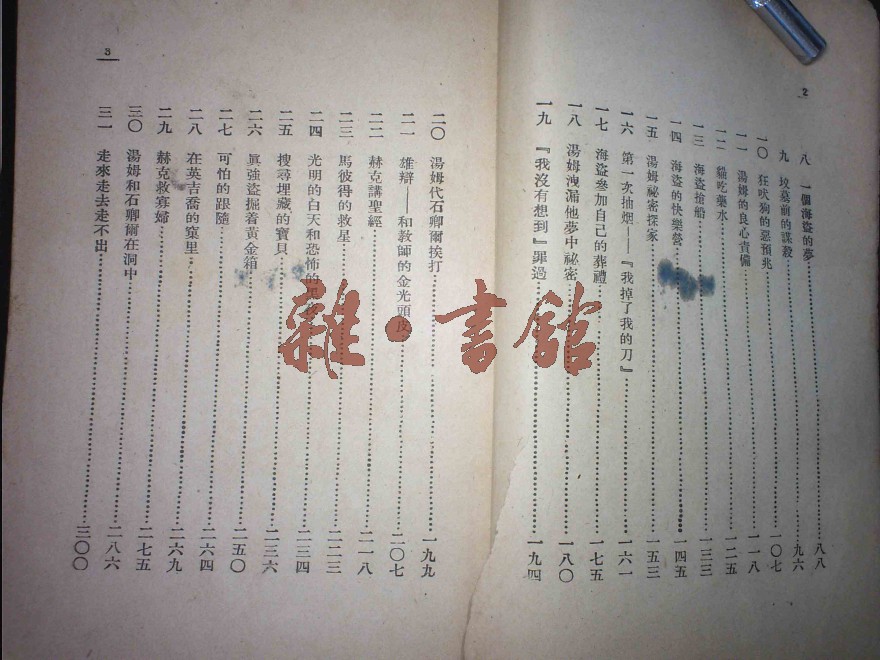 2
八 一個海盜的夢 八八
九 坟墓前的謀殺 九六
一〇 狂吠狗的惡預兆 一〇七
一一 湯姆的良心責備 一一八
一二 貓吃藥水 一二五
一三 海盜搶船 一三三
一四 海盜的快樂營 一四五
一五 湯姆祕密探家 一五三
一六 第一次抽烟——『我掉了我的刀』 一六一
一七 海盜參加自己的葬禮 一七五
一八 湯姆洩漏他夢中祕密 一八〇
一九 『我沒有想到』罪過 一九四
3
二〇 湯姆代石卿爾挨打 一九九
二一 雄辯——和教師的金光頭皮 二〇七
二二 赫克講聖經 二一八
二三 馬彼得的救星 二二三
二四 光明的白天和恐怖的 二三四
二五 搜尋埋藏的寶貝 二三六
二六 眞強盜掘着黃金箱 二五〇
二七 可怕的跟隨 二六四
二八 在英吉喬的窠里 二六九
二九 赫克救寡婦 二七五
三〇 湯姆和石卿爾在洞中 二八六
三一 走來走去走不出 三〇〇
雜·書館